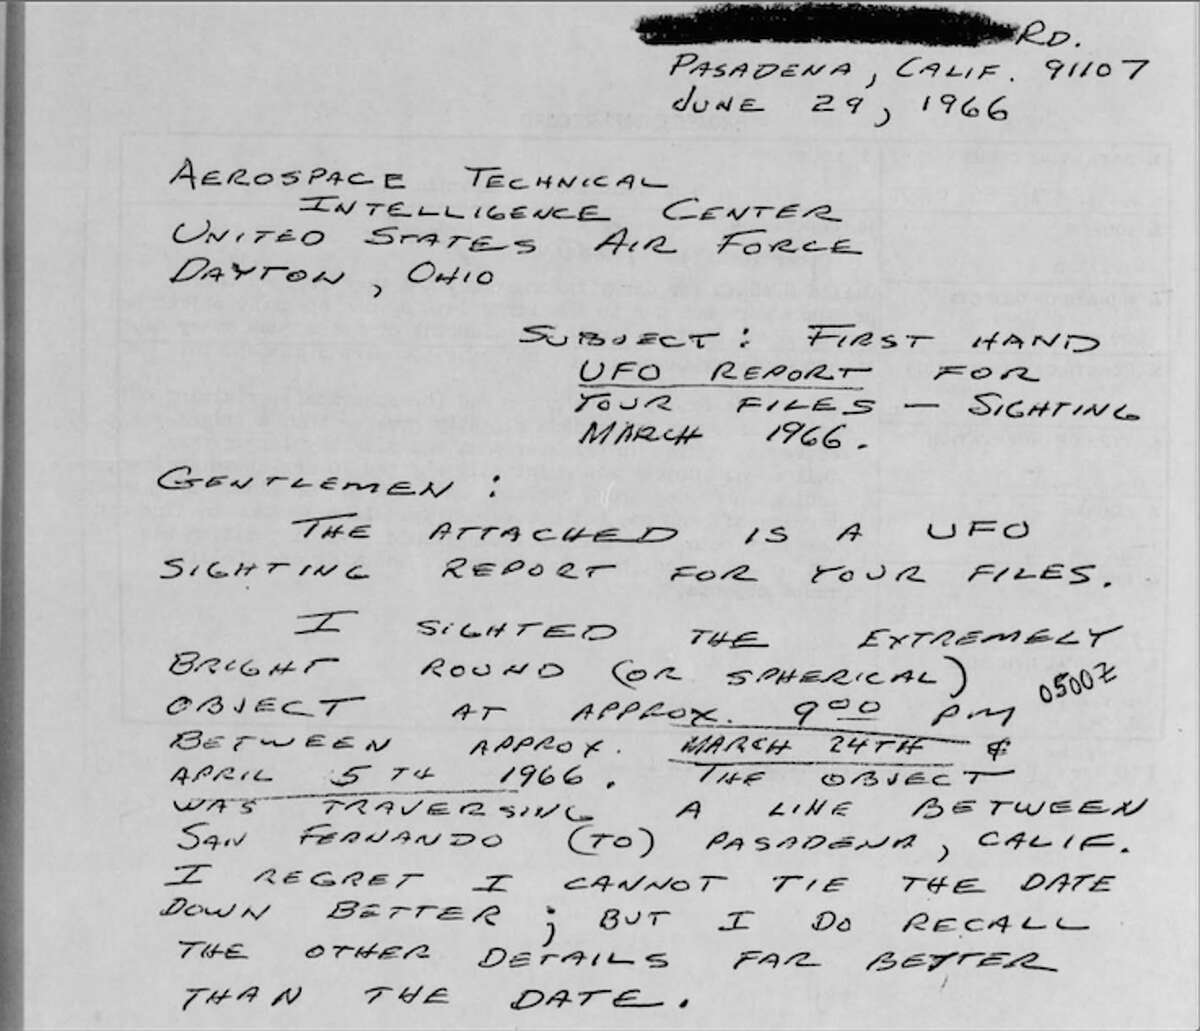 RD.
PASADENA, CALIF. 91107
JUNE 29, 1966
AEROSPACE TECHNICAL
INTELLIGENCE CENTER
UNITED STATES AIR FORCE
DAYTON, OHIO
SUBJECT: FIRST HAND
UFO REPORT FOR
YOUR FILES — SIGHTING
MARCH 1966.
GENTLEMEN:
THE ATTACHED IS A UFO
SIGHTING REPORT FOR YOUR FILES.
I SIGHTED THE EXTREMELY
BRIGHT ROUND (OR SPHERICAL)
OBJECT AT APPROX. 9 00 P.M 0500Z
BETWEEN APPROX. MARCH 24TH &
APRIL 5TH 1966. THE OBJECT
WAS TRAVERSING A LINE BETWEEN
SAN FERNANDO (TO) PASADENA, CALIF.
I REGRET I CANNOT TIE THE DATE
DOWN BETTER; BUT I DO RECALL
THE OTHER DETAILS FAR BETTER
THAN THE DATE.